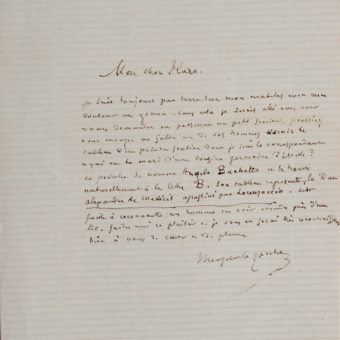 Mon cher Haro.
je suis toujours par terre sur mon matelas avec ma
douleur au genou. sans cela je serais allé vous voir
vous demander en personne un petit service. pourriez
vous envoyer au salon un de vos hommes vernir le
tableau d'un peintre italien dont je suis le correspondant
et qui est le mari d'une cousine germaine d'
ce peintre se nomme Angelo Bachetta et se trouve
naturellement à la lettre B. Son tableau représente le Duc
alexandre de Médicis assassiné par Lorenzaccio. c'est
facile à reconnaître. un homme en noir près d'un
lit. faites moi ce plaisir et je vous en serai très reconnaissant
bien à vous de cœur et de plume